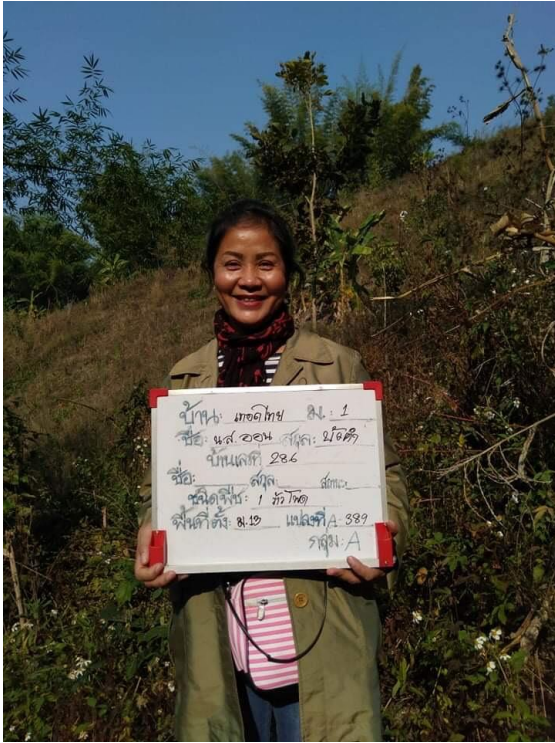 บ้าน: เทอดไทย ม.: 1
ชื่อ: น.ส. ออน สกุล: บัวคำ
บ้านเลขที่ 286
ชื่อ: สกุล สถานะ
ชนิดพืช: 1 ถั่วโพด
พื้นที่ตั้ง: ม.13 แปลงที่ A-389
กลุ่ม: A